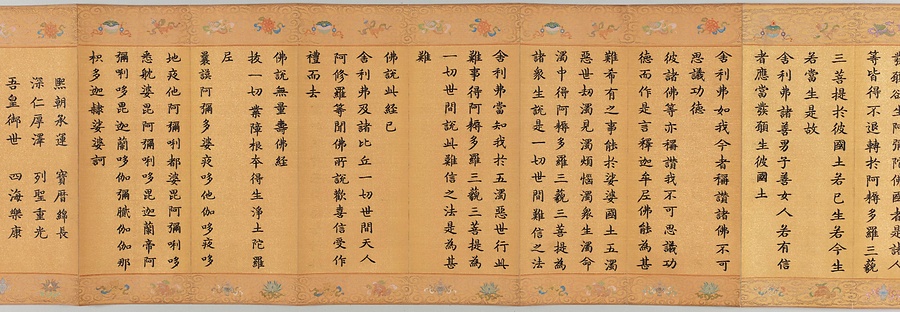 等皆得不退轉於阿耨多羅三藐
三菩提於彼國土若已生若今生
若當生是故
舍利弗諸善男子善女人若有信
者應當發願生彼國土
舍利弗如我今者稱讚諸佛不可
思議功德
彼諸佛等亦稱讚我不可思議功
德而作是言釋迦牟尼佛能為甚
難希有之事能於娑婆國土五濁
惡世劫濁見濁煩惱濁衆生濁命
濁中得阿耨多羅三藐三菩提為
諸衆生說是一切世間難信之法
舍利弗當知我於五濁惡世行此
難事得阿耨多羅三藐三菩提為
一切世間說此難信之法是為甚
難
佛說此經已
舍利弗及諸比丘一切世間天人
阿修羅等聞佛所說歡喜信受作
禮而去
佛說無量壽佛經
拔一切業障根本得生淨土陀羅
尼
曩謨阿彌多婆夜哆他伽哆夜哆
地夜他阿彌唎都婆毘阿彌唎哆
悉躭婆毘阿彌唎哆毘迦蘭帝阿
彌唎哆毘迦蘭哆伽彌膩伽伽那
枳多迦隸娑婆訶
熙朝承運 寶曆綿長
深仁厚澤 列聖重光
吾皇御世 四海樂康